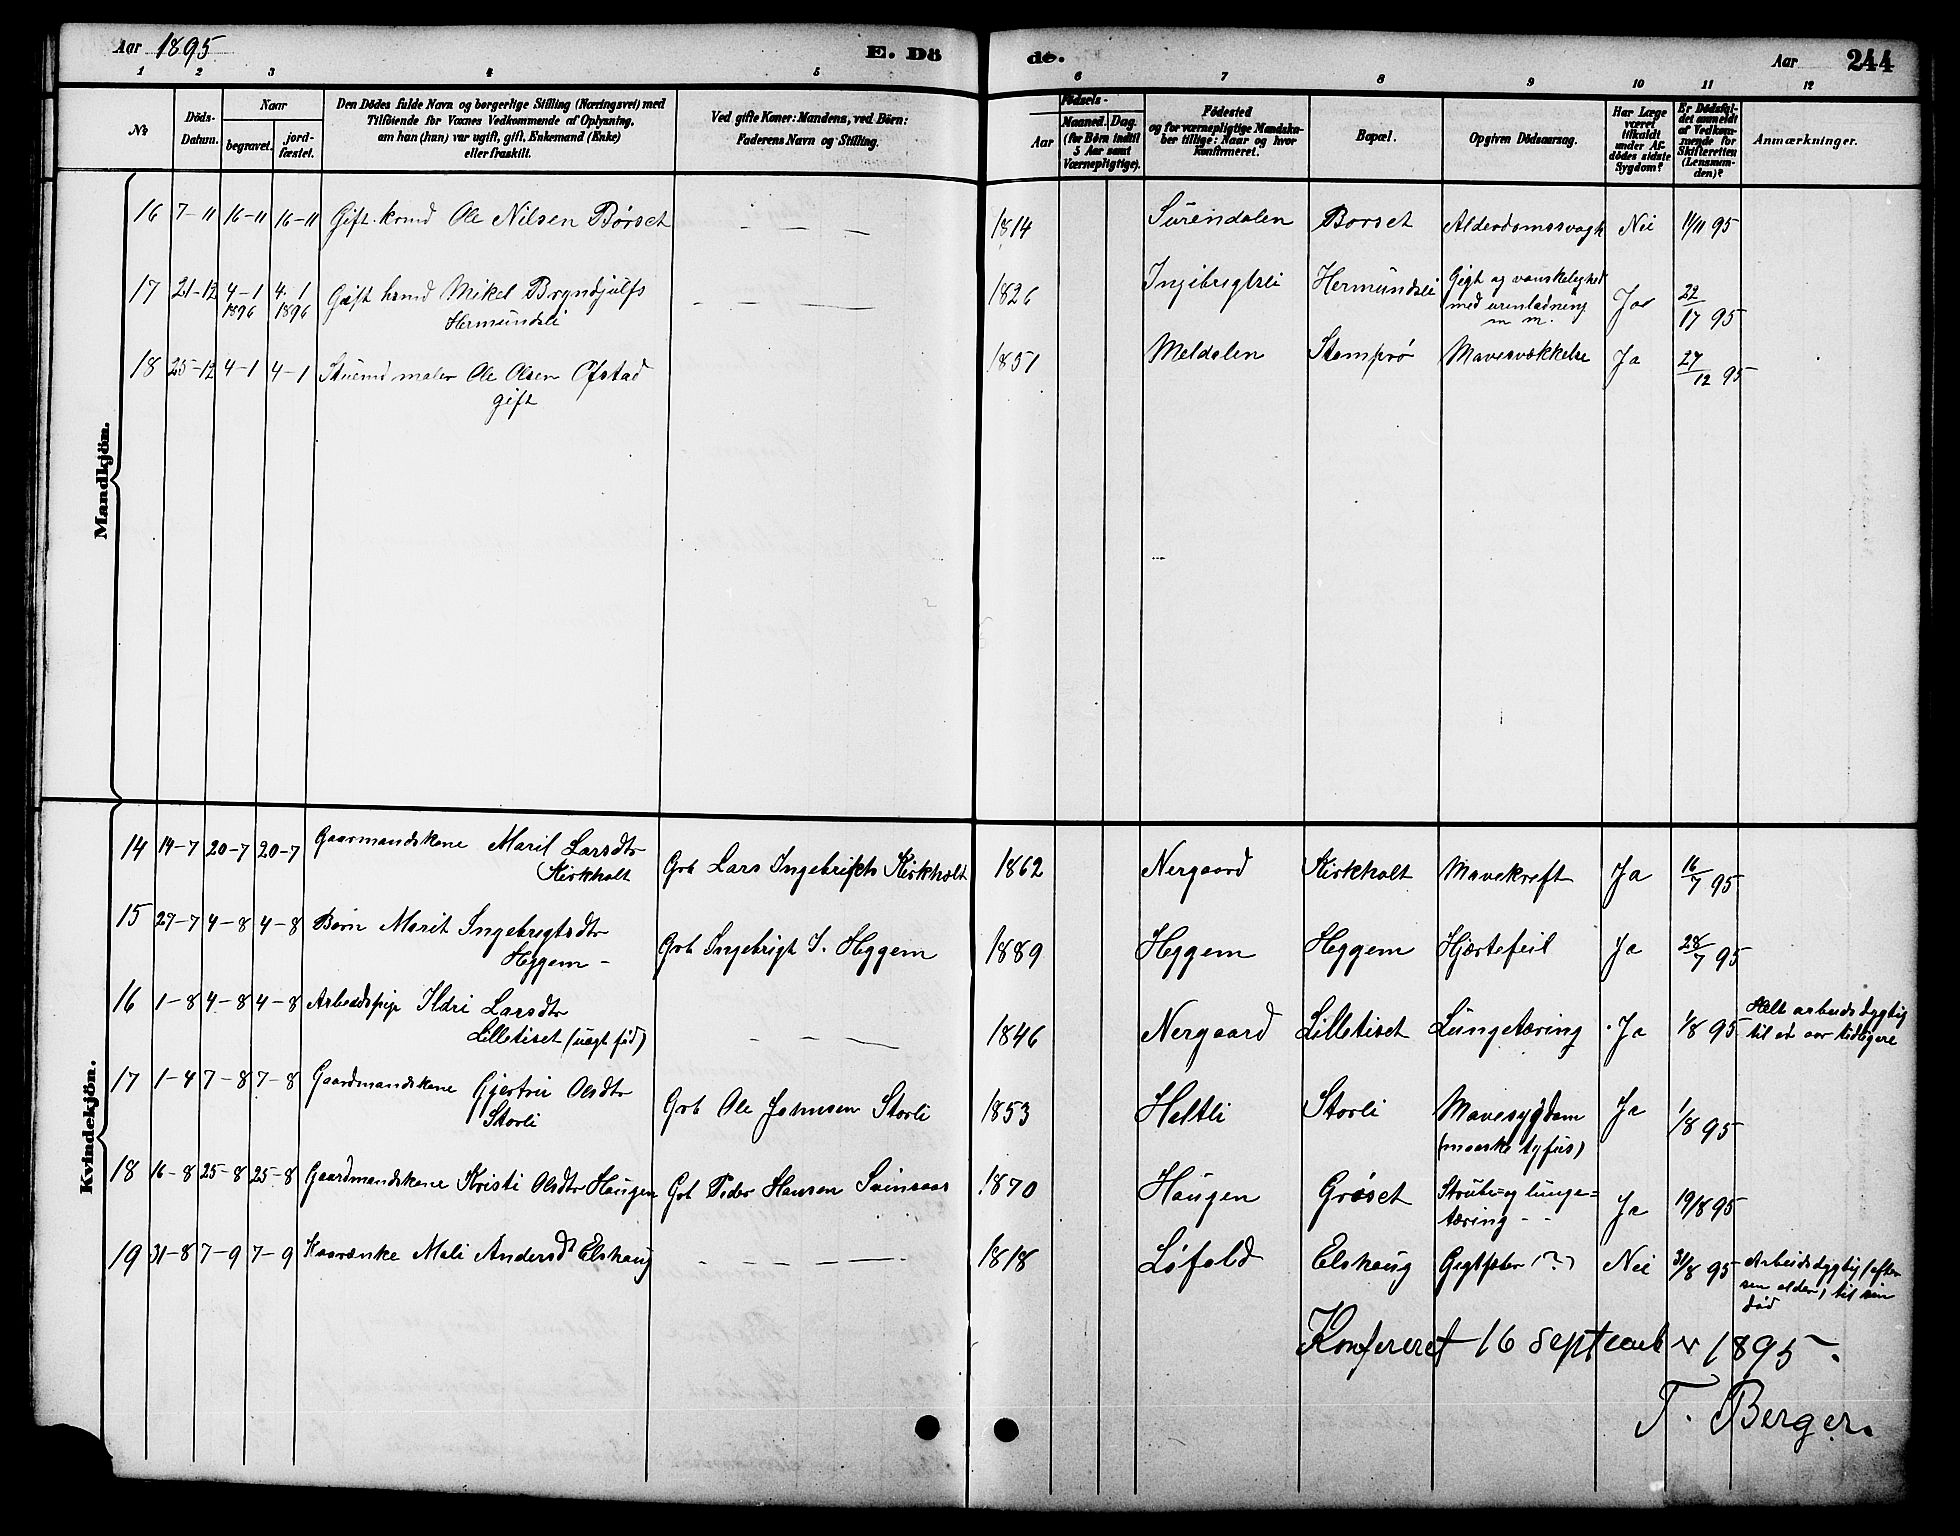 Aar 1895.
E. Dö
de.
Aar
244
1 2 3 4 5 6 7 8 9 10 11 12
No
Döds-
Datum.
Naar
begravet.
jord-
fæstet.
Den Dödes fulde Navn og borgerlige Stilling (Næringsvei) med
Tilföiende for Voxnes Vedkommende af Oplysning,
om han (hun) var ugift, gift, Enkemand (Enke)
eller fraskilt.
Ved gifte Koner: Mandens, ved Börn:
Faderens Navn og Stilling.
Födsels-
Aar
Maaned. Dag.
(for Börn indtil
5 Aar samt
Værnepligtige).
Födested
og for værnepligtige Mandska-
ber tillige: Naar og hvor
Konfirmeret.
Bopæl.
Opgiven Dödsaarsag.
Har Læge
været
tilkaldt
under Af-
dödes sidste
Sygdom?
Er Dödsfal-
det anmeldt
af Vedkom-
mende for
Skifteretten
(Lensman-
den)?
Anmærkninger.
Mandkjön.
16 7-11 16-11 16-11 Gift. krmd Ole Nilsen Børset — — — 1814 Surendalen Borset Alderdomssvagh Nei 11/11 95
17 21-12 4-1 1896 4-1 1896 Gift hsmd Mikel Bryndjulfs
Hermundsli
— — — 1826 Ingibrigtsli Hermundsli Gigt og vanskelighed
med urinladning
m m.
Ja 22/17 95
18 25-12 4-1 4-1 Stuemd maler Ole Olsen Ofstad
gift
1851 Meldalen Stamprø Mavesvækkelse Ja 27/12 95
Kvindekjön.
14 14-7 20-7 20-7 Gaarmandskone Marit Larsdtr
Kirkholt
Grb Lars Ingebrikts Kirkholt 1862 Nergaard Kirkholt Mavekreft Ja 16/7 95
15 27-7 4-8 4-8 Barn Marit Ingebrigtsdtr
Heggem -
Grb Ingebrigt I. Heggem 1889 Heggem Heggem Hjærtefeil Ja 28/7 95
16 1-8 4-8 4-8 Arbeidspige Ildri Larsdtr
Lilletiset (uægt fød)
— — — 1846 Nergaard Lilletiset Lungetæring Ja 1/8 95 Helt arbeidsdygtig
til et aar tidligere
17 1-4 7-8 7-8 Gaardmandskone Gjertru Olsdtr
Storli
Grb Ole Johnsen Storli 1853 Heltli Storli Mavesygdom
(maaske tyfus)
Ja 1/8 95
18 16-8 25-8 25-8 Gaardmandskone Kristi Olsdtr Haugen Grb Peder Hansen Svinsaas 1870 Haugen Grøset Strube-og lunge=
tæring - -
Ja 19/8 95
19 31-8 7-9 7-9 Kaarænke Mali Andersdt Elshaug — — — 1818 Løfald Elshaug Gigtfeber (?) Nei 31/8 95 Arbeidsdygtig (efter
sin alder) til sin
død
Konfereret 16 september 1895.
T. Berger.